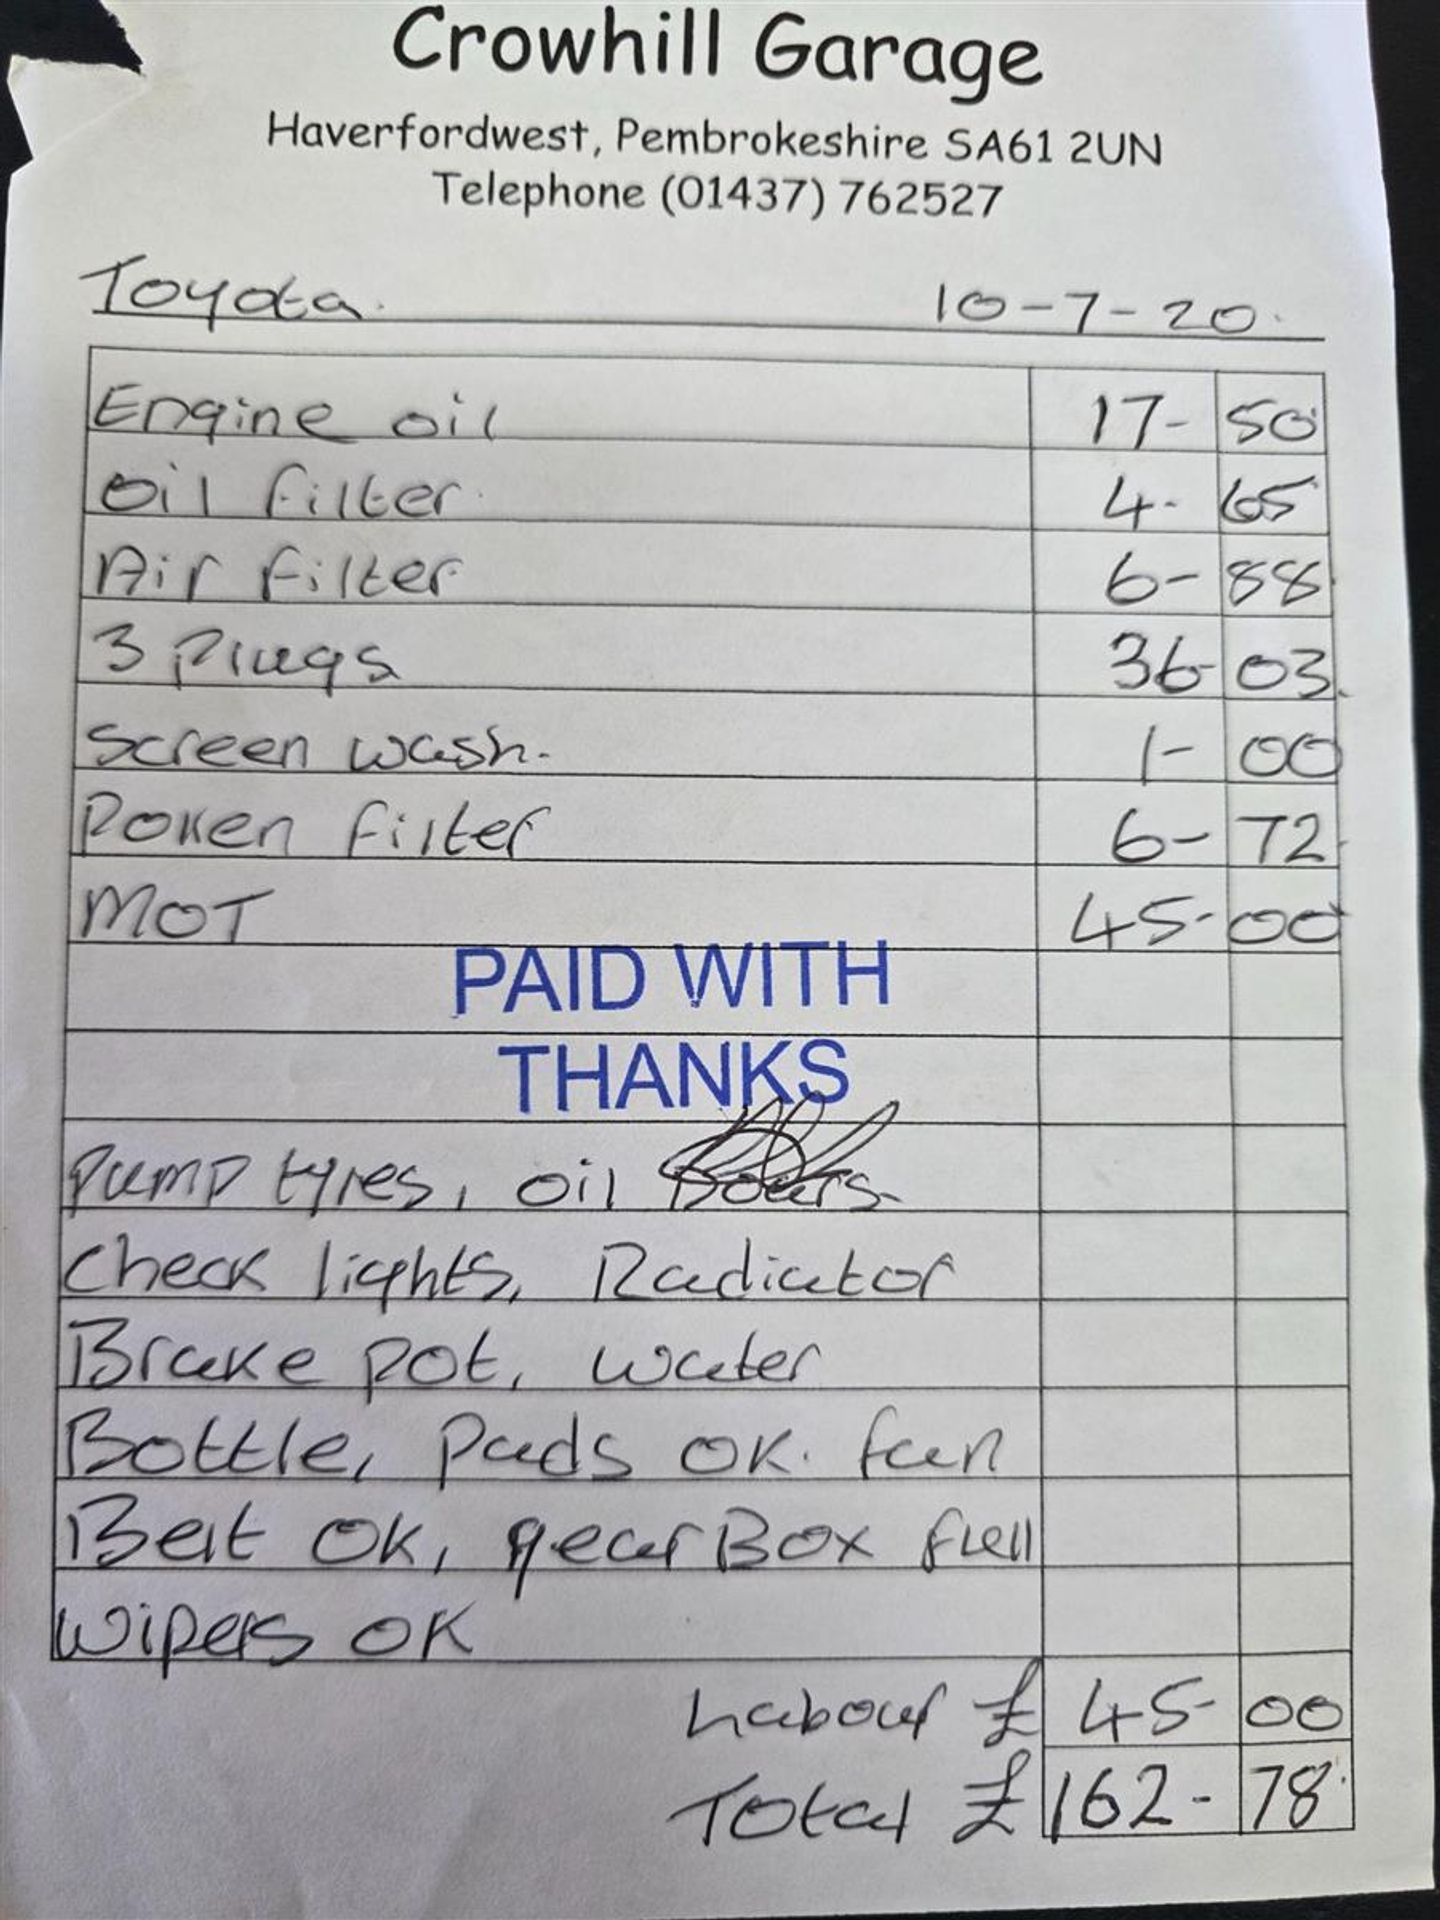 Crowhill Garage
Haverfordwest, Pembrokeshire SA61 2UN
Telephone (01437) 762527
Toyota. 10-7-20.
Engine oil 17- 50
oil filter. 4- 65
Air filter 6- 88
3 Plugs 36- 03
Screen wash. 1- 00
Pollen filter 6- 72
MOT 45- 00
PAID WITH
THANKS
Pump tyres, oil Doors.
check lights, Radiator
Brake pot, water
Bottle, pads OK. fan
Belt OK, gear Box full
wipers OK
Labour £ 45- 00
Total £ 162- 78